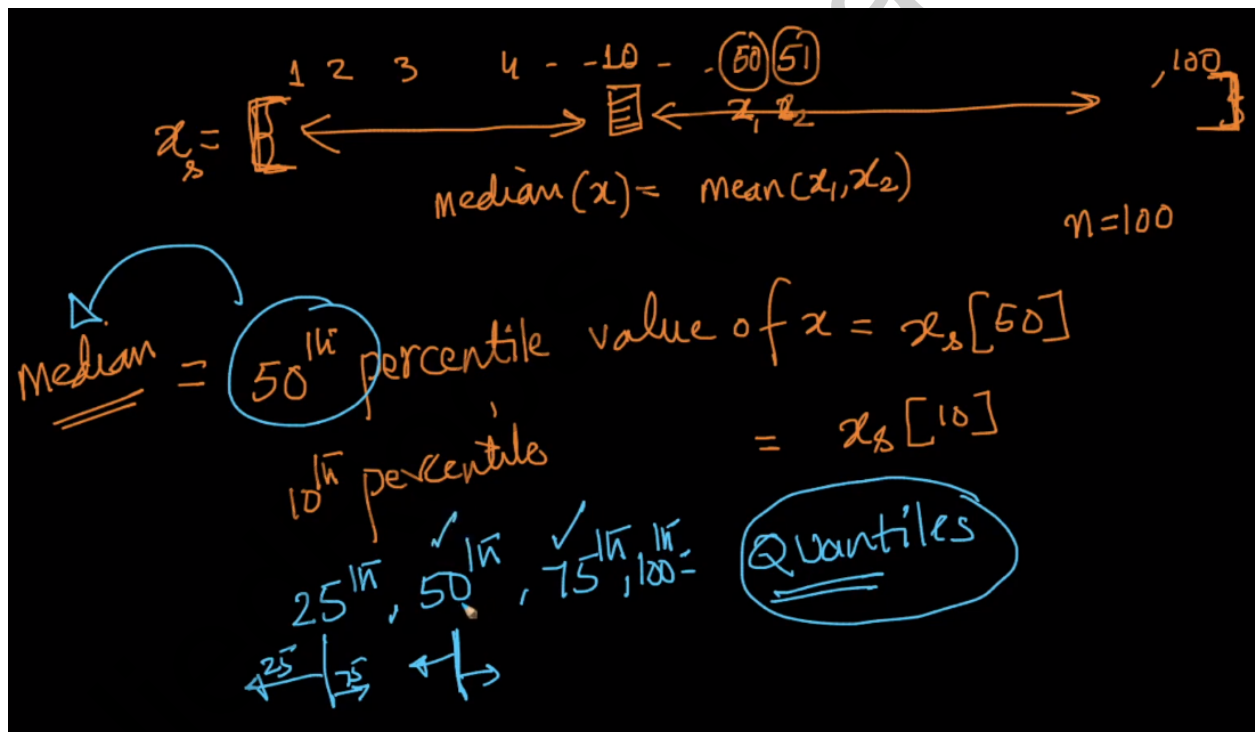 1 2 3 4 - - 10 - - 50 51 , 100
xₛ = [ x₁ x₂ ]
median(x) = mean(x₁,x₂)
n=100
Median = 50th percentile value of x = xₛ[50]
10th percentiles = xₛ[10]
25th, 50th, 75th, 100th = Quantiles
25 75